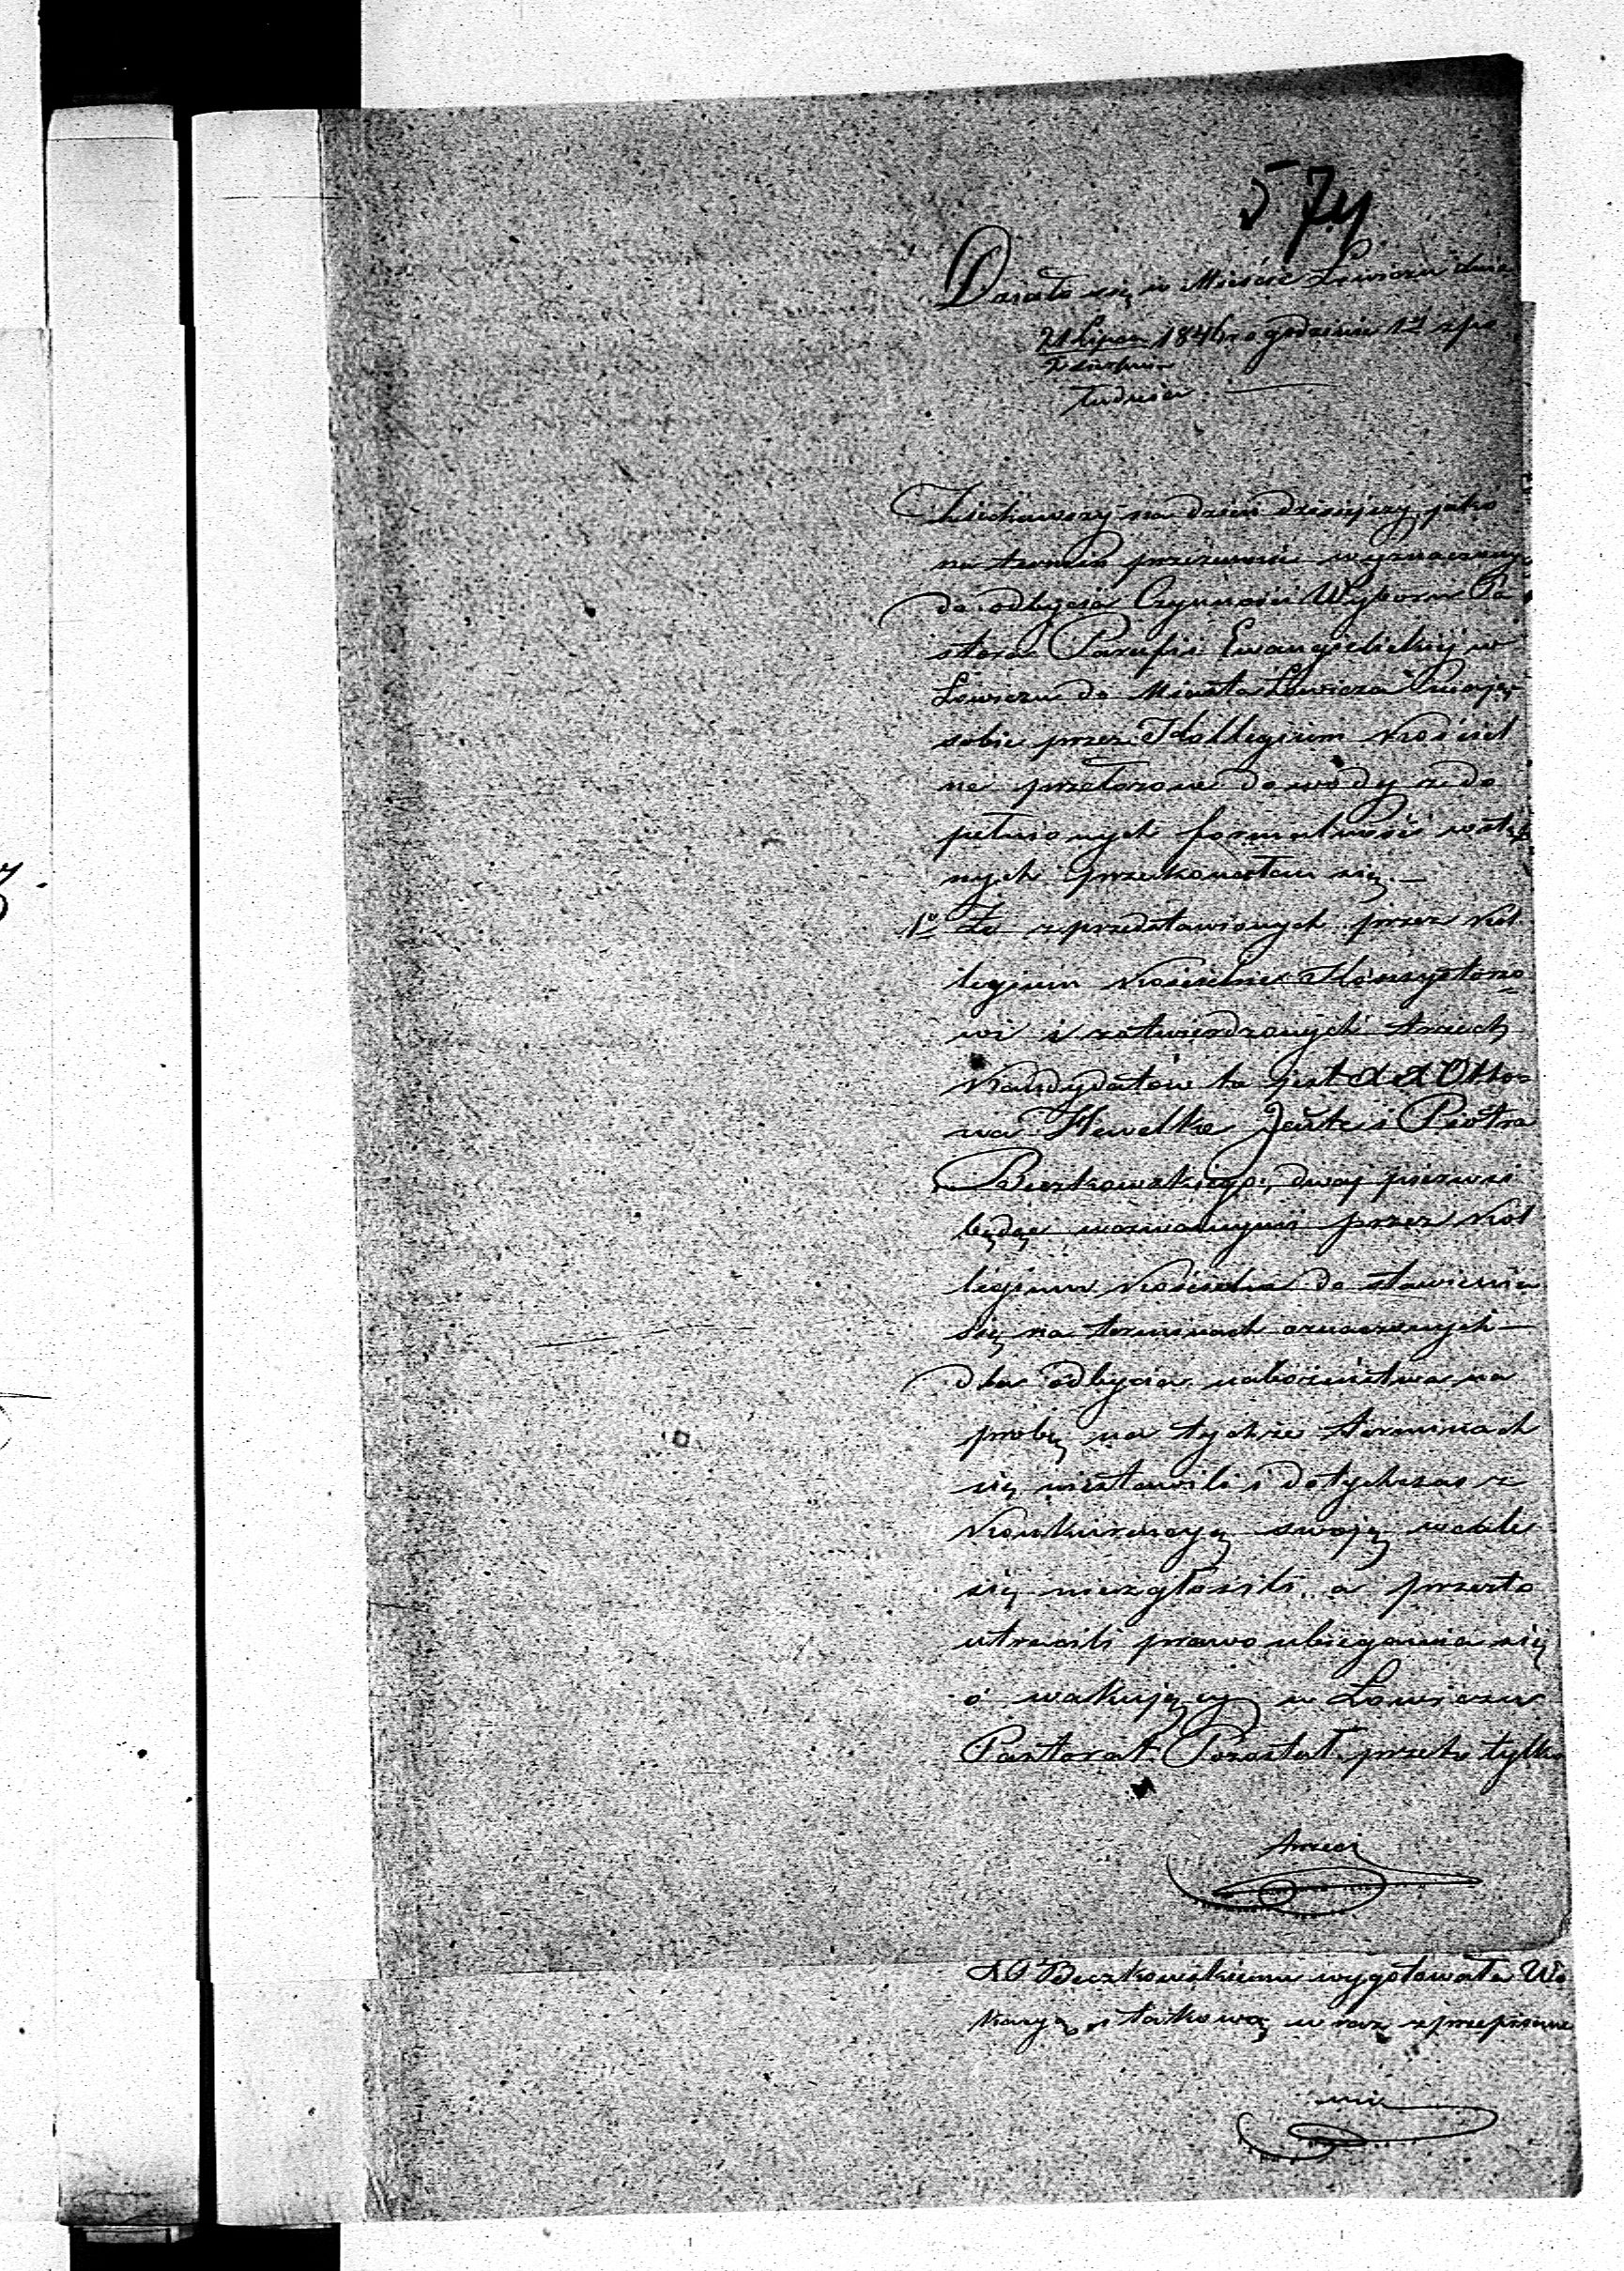 574
Działo się w Mieście Łowiczu dnia
21 Lipca 1846 ro godzinie 1ej z po
2 Sierpnia
łudnia.
Zjechawszy na dzień dzisiejszy jako
na termin przezemnie wyznaczony
do odbycia Czynności Wyboru Pa
stora Parafii Ewangielickiej w
Łowiczu do Miasta Łowicza mając
sobie przez Kollegium Kościel
ne przełożone dowody z do
pełnionych formalności wstęp
nych przekonałem się. —
1o Że z przedstawionych przez Kol
legium Kościelne Konsystorzo
wi i zatwierdzonych trzech
Kandydatów to jest X X Otto
na Hewelke Jentz i Piotra
Beczkowskiego, dwaj pierwsi
będąc wezwanymi przez Kol
legium Kościelne do stawienia
się na terminach oznaczonych
dla odbycia nabożeństwa na
probę na tychże terminach
się niestawili i dotychczas z
Konkurencyą swoją wcale
się niezgłosili a przeto
utracili prawo ubiegania się
o wakujący w Łowiczu
Pastorat. Pozostał przeto tylko
trzeci
X P Beczkowskiemu wygotowała Wo
kacyą i takową wraz z przepisane
mi